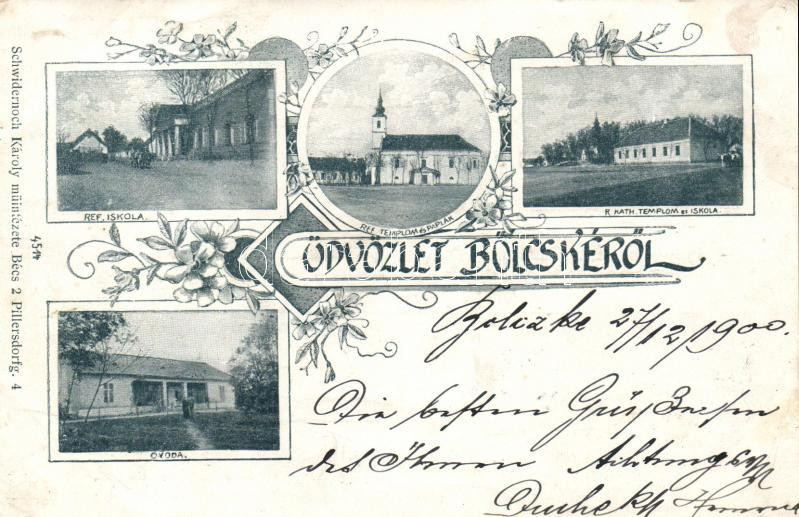 Schwidernoch Károly műintézete Bécs 2 Pillersdorfg. 4
4514
REF. ISKOLA.
REF. TEMPLOM és PAPLAK
R. KATH. TEMPLOM és ISKOLA.
ÜDVÖZLET BÖLCSKÉRŐL
ÓVODA.
Bölczke 27/12 1900.
Die besten Grüße
des Ihnen Achtungsv.